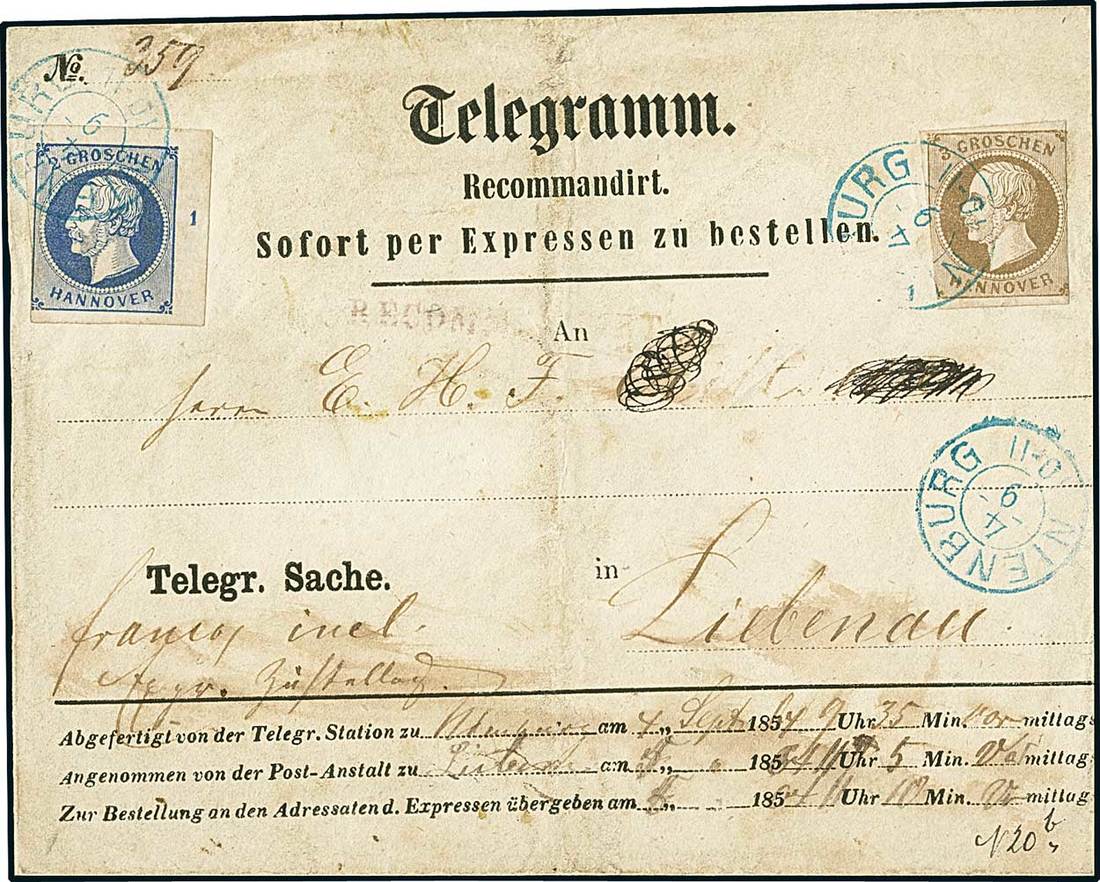 No. 359.
Telegramm.
Recommandirt.
Sofort per Expressen zu bestellen.
2 GROSCHEN
HANNOVER
1
3 GROSCHEN
HANNOVER
BURG
6
4
An
Herrn E. H. F.
NIENBURG
6
4
Telegr. Sache.
in Liebenau.
franco incl.
Expr.
Abgefertigt von der Telegr. Station zu Nienburg am 4 „ Sept 185 9 Uhr 35 Min. vor mittag
Angenommen von der Post-Anstalt zu am „ 185 Uhr 5 Min. mittag
Zur Bestellung an den Adressaten d. Expressen übergeben am „ 185 Uhr Min. mittag
N20 b